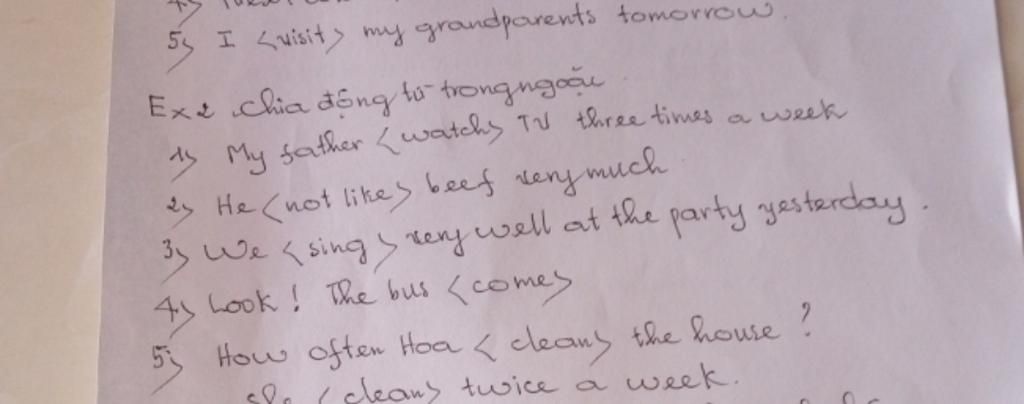 5> I <visit> my grandparents tomorrow.
Ex2 Chia động từ trong ngoặc
1> My father <watch> TV three times a week
2> He <not like> beef very much
3> We <sing> very well at the party yesterday.
4> Look! The bus <come>
5> How often Hoa <clean> the house?
She <clean> twice a week.